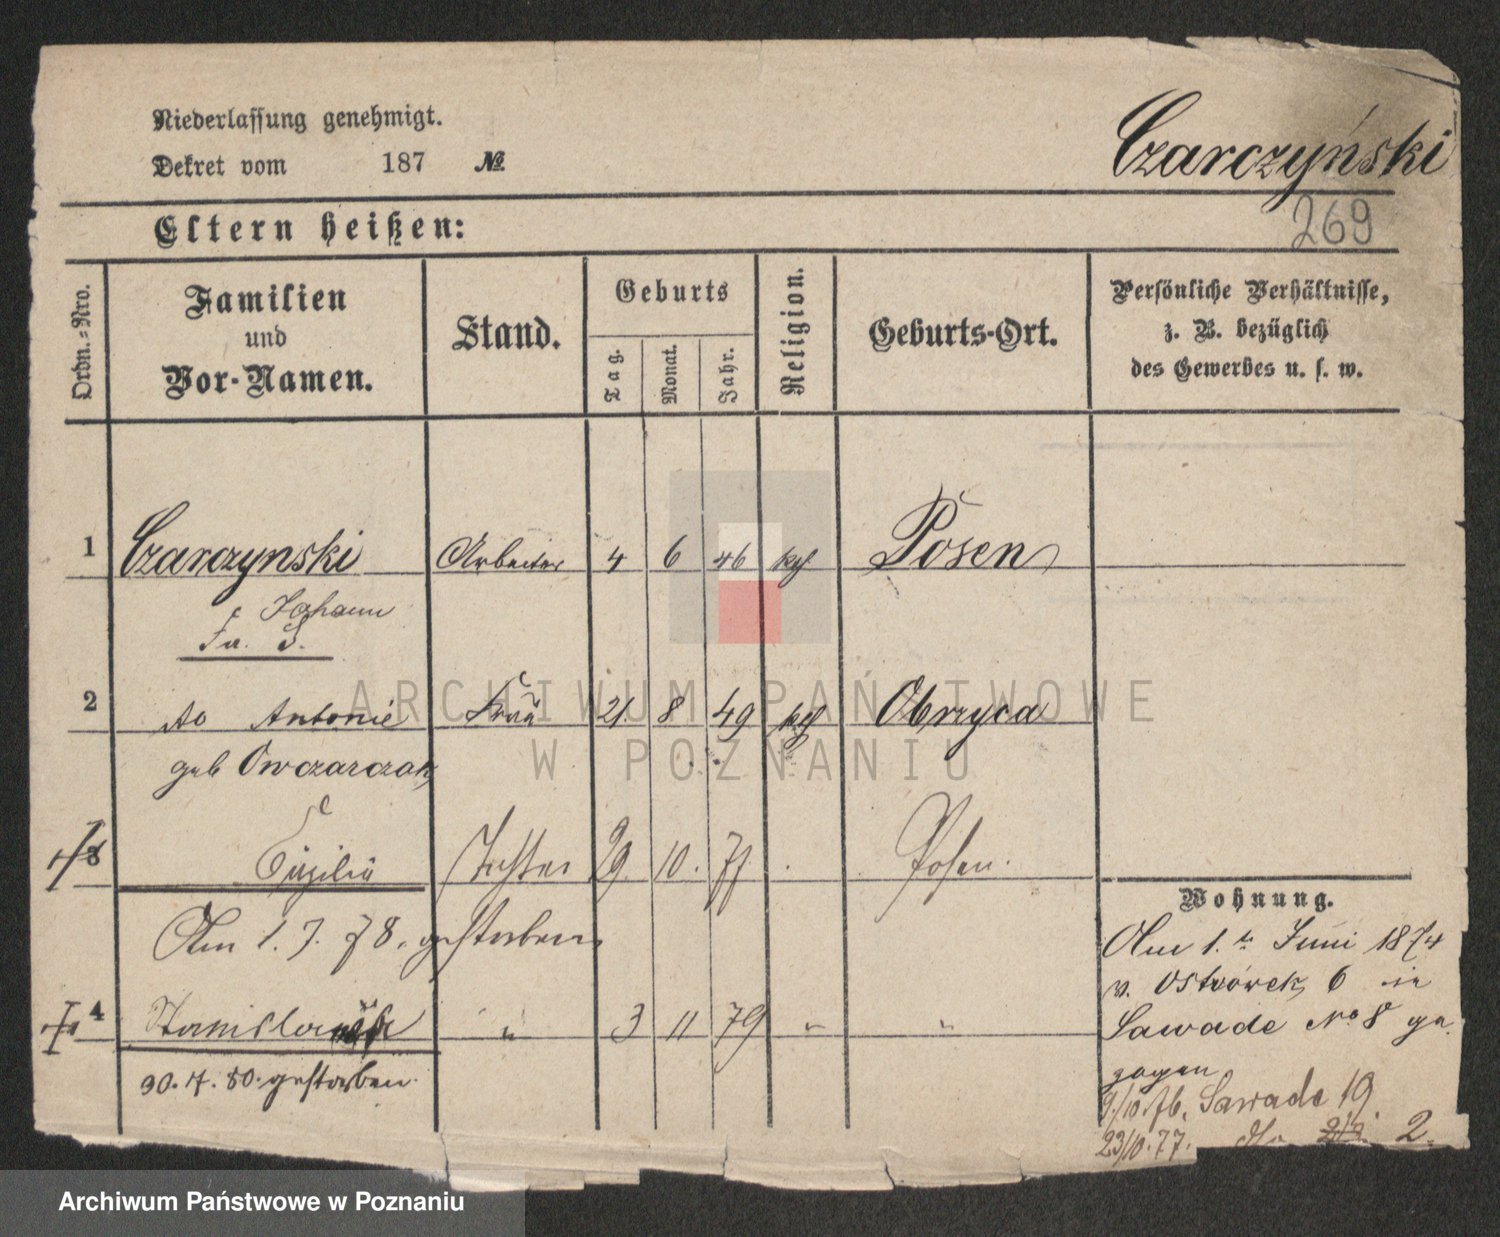 Niederlassung genehmigt.
Dekret vom 187 №
Czarczyński
269
Eltern heißen:
Ordn.-Nro.
Familien
und
Vor-Namen.
Stand.
Geburts
Tag.
Monat.
Jahr.
Religion.
Geburts-Ort.
Persönliche Verhältnisse,
z. B. bezüglich
des Gewerbes u. s. w.
1 Czarczynski Arbeiter 4 6 46 kg Posen
Johann
Fa. S.
2 do Antonie Frau 21. 8 49 kg Obrzyca
geb Owczarczak
3 Cäzilie Tochter 29 10. 77 Posen.
Am 1. 7. 78. gestorben
4 Stanislaus " 3 11 79 " "
30. 4. 80. gestorben.
Wohnung.
Am 1. Juni 1874
v. Ostrówek 6 in
Sawade No 8 ge
zogen
9/10.76. Sawade 19
23/10.77. do 2.
ARCHIWUM PAŃSTWOWE
W POZNANIU
Archiwum Państwowe w Poznaniu